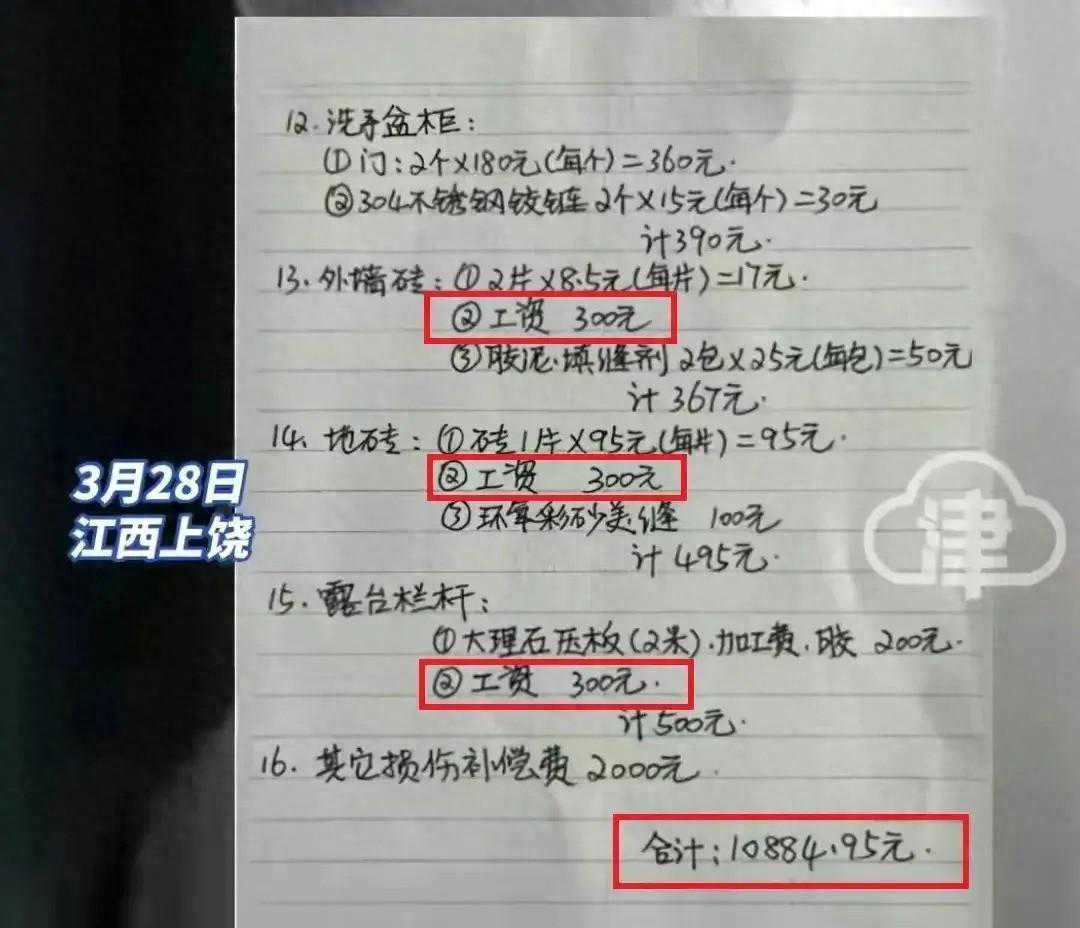 12.洗手盆柜：
①门：2个×180元(每个)=360元.
②304不锈钢铰链 2个×15元(每个)=30元
计390元.
13.外墙砖：①2片×8.5元(每片)=17元.
②工资 300元
③胶泥.填缝剂 2包×25元(每包)=50元
计367元.
14.地砖：①砖1片×95元(每片)=95元.
②工资 300元
③环氧彩砂美缝 100元
计495元.
3月28日
江西上饶
津
15.露台栏杆：
①大理石压板(2米).加工费.胶 200元.
②工资 300元.
计500元.
16.其它损伤补偿费 2000元.
合计：10884.95元.